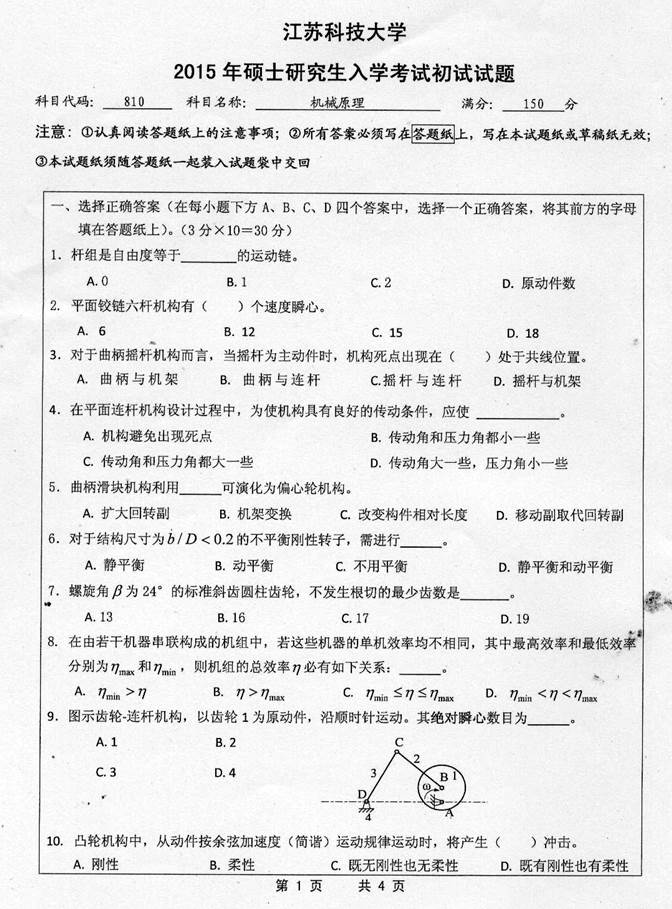 江苏科技大学
2015 年硕士研究生入学考试初试试题
科目代码: 810 科目名称: 机械原理 满分: 150 分
注意: ①认真阅读答题纸上的注意事项; ②所有答案必须写在答题纸上, 写在本试题纸或草稿纸无效;
③本试题纸须随答题纸一起装入试题袋中交回
一、选择正确答案（在每小题下方 A、B、C、D 四个答案中，选择一个正确答案，将其前方的字母
填在答题纸上）。（3 分×10＝30 分）
1. 杆组是自由度等于________的运动链。
A. 0 B. 1 C. 2 D. 原动件数
2. 平面铰链六杆机构有（ ）个速度瞬心。
A. 6 B. 12 C. 15 D. 18
3. 对于曲柄摇杆机构而言，当摇杆为主动件时，机构死点出现在（ ）处于共线位置。
A. 曲柄与机架 B. 曲柄与连杆 C.摇杆与连杆 D. 摇杆与机架
4. 在平面连杆机构设计过程中，为使机构具有良好的传动条件，应使 ____________。
A. 机构避免出现死点 B. 传动角和压力角都小一些
C. 传动角和压力角都大一些 D. 传动角大一些，压力角小一些
5. 曲柄滑块机构利用______可演化为偏心轮机构。
A. 扩大回转副 B. 机架变换 C. 改变构件相对长度 D. 移动副取代回转副
6. 对于结构尺寸为 b / D < 0.2 的不平衡刚性转子，需进行______。
A. 静平衡 B. 动平衡 C. 不用平衡 D. 静平衡和动平衡
7. 螺旋角 β 为 24° 的标准斜齿圆柱齿轮，不发生根切的最少齿数是_______。
A. 13 B. 16 C. 17 D. 19
8. 在由若干机器串联构成的机组中，若这些机器的单机效率均不相同，其中最高效率和最低效率
分别为 ηmax 和 ηmin，则机组的总效率 η 必有如下关系: ______。
A. ηmin > η B. η > ηmax C. ηmin ≤ η ≤ ηmax D. ηmin < η < ηmax
9. 图示齿轮-连杆机构，以齿轮 1 为原动件，沿顺时针运动。其绝对瞬心数目为______。
A. 1 B. 2
C. 3 D. 4
C
2
3
B 1
ω
D
A
4
10. 凸轮机构中，从动件按余弦加速度（简谐）运动规律运动时，将产生（ ）冲击。
A. 刚性 B. 柔性 C. 既无刚性也无柔性 D. 既有刚性也有柔性
第 1 页 共 4 页